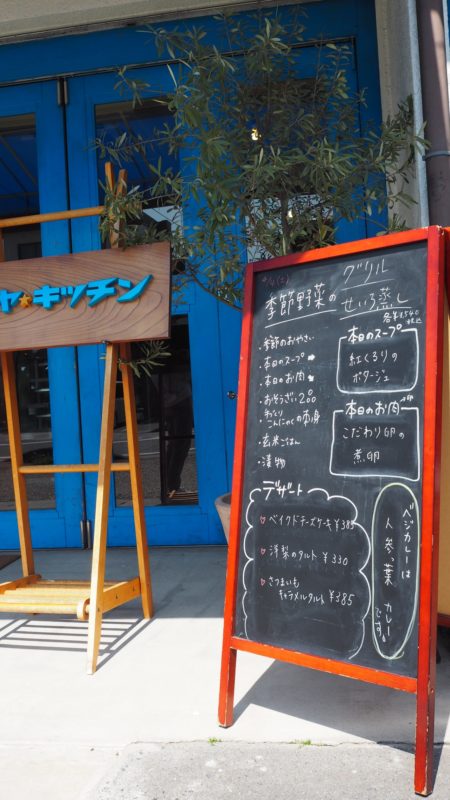 ヤ★キッチン
(土)
季節野菜の グリル
せいろ蒸し
・季節のおやさい
・本日のスープ
・本日のお肉
・おそうざい2品
・手づくりこんにゃくの刺身
・玄米ごはん
・漬物
本日のスープ
紅くるりの
ポタージュ
本日のお肉
こだわり卵の
煮卵
デザート
♡ベイクドチーズケーキ ¥385
♡洋梨のタルト ¥330
♡さつまいも
キャラメルタルト ¥385
ベジカレーは
人参葉 カレー
です。